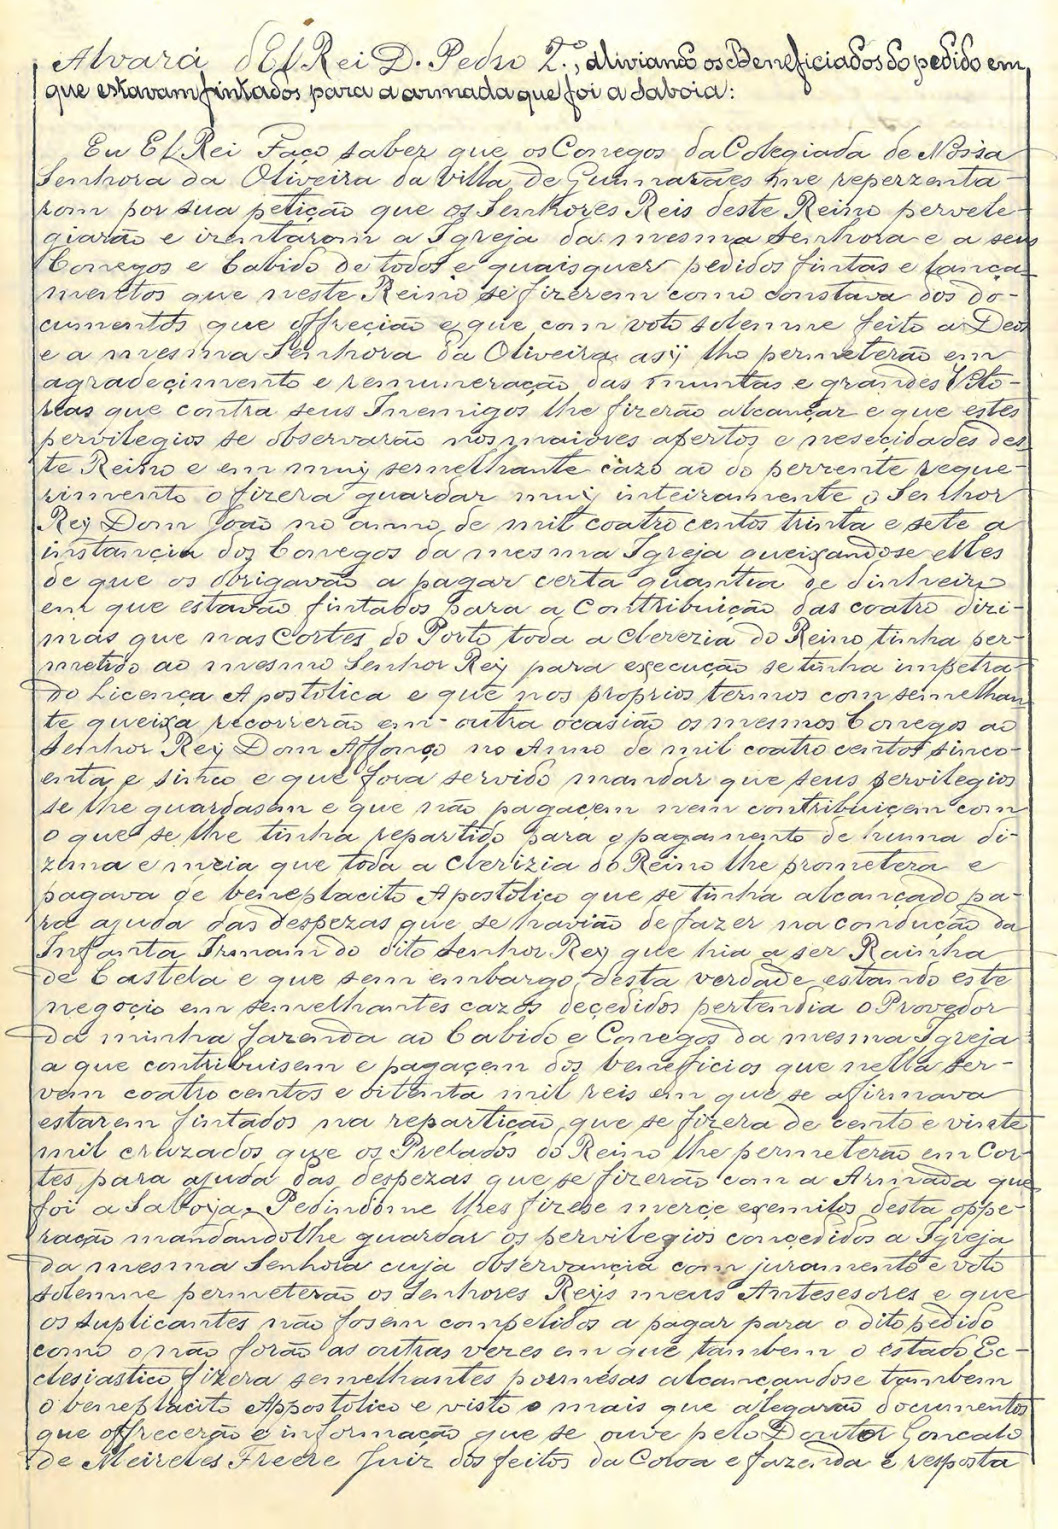 Alvará d'El Rei D. Pedro 2.º, aliviando os Beneficiados do pedido em
que estavam fintados para a armada que foi a Saboia:
Eu El Rei Faço saber que os Conegos da Colegiada de Nossa
Senhora da Oliveira da Villa de Guimarães me reperzenta-
rom por sua petição que os Senhores Reis deste Reino pervele-
giarão e izentarom a Igreja da mesma Senhora e a seus
Conegos e Cabido de todos e quaisquer pedidos fintas e lança-
mentos que neste Reino se fizerem como constava dos do-
cumentos que offreçião e que com voto solemne feito a Deos
e a mesma Senhora da Oliveira asÿ lho permeterão em
agradeçimento e remuneração das muntas e grandes Vito-
reas que contra seus Inemigos lhe fizerão alcançar e que estes
pervilegios se observarão nos maiores apertos e neseçidades des
te Reino e em muy semelhante cazo ao do perzente reque-
rimento o fizera guardar muy inteiramente o Senhor
Rey Dom João no anno de mil coatro centos trinta e sete a
instançia dos Conegos da mesma Igreja queixandose elles
de que os obrigavão a pagar certa quantia de dinheiro
em que estavão fintados para a Contribuição das coatro dizi-
mas que nas Cortes do Porto toda a clerezia do Reino tinha per-
metido ao mesmo Senhor Rey para execução se tinha impetra-
do Licença Apostolica e que nos proprios termos com semelhan
te queixa recorrerão em outra ocasião os mesmos Conegos ao
Senhor Rey Dom Affonço no Anno de mil coatro centos sinco-
enta e sinco e que fora servido mandar que seus pervilegios
se lhe guardasem e que não pagaçem nem contribuiçem com
o que se lhe tinha repartido para o pagamento de huma di-
zima e meia que toda a clerizia do Reino lhe prometera e
pagava de beneplacito Apostolico que se tinha alcançado pa-
ra ajuda das despezas que se havião de fazer na condução da
Infanta Irmam do dito Senhor Rey que hia a ser Rainha
de Castela e que sem embargo desta verdade estando este
negoçio em semelhantes cazos deçedidos pertendia o Provedor
da minha fazenda ao Cabido e Conegos da mesma Igreja
a que contribuisem e pagaçem dos beneficios que nella ser-
vem coatro centos e oitenta mil reis em que se afirmava
estarem fintados na repartição que se fizera de cento e vinte
mil cruzados que os Prelados do Reino lhe permeterão em Cor-
tes para ajuda das despezas que se fizerão com a Armada que
foi a Saboja. Pedindome lhes fizese merçe exemilos desta oppe-
ração mandandolhe guardar os pervilegios conçedidos a Igreja
da mesma Senhora cuja observançia com juramento e voto
solemne permeterão os Senhores Reys meus Antesesores e que
os suplicantes não fosem compelidos a pagar para o dito pedido
como o não forão as outras vezes em que tambem o estado Ec-
clesiastico fizera semelhantes pormesas alcançandose tambem
o beneplacito Appostolico e visto o mais que alegarão documentos
que offrecerão e informação que se ouve pelo Doutor Goncalo
de Meireles Freere Juiz dos feitos da Coroa e fazenda e resposta